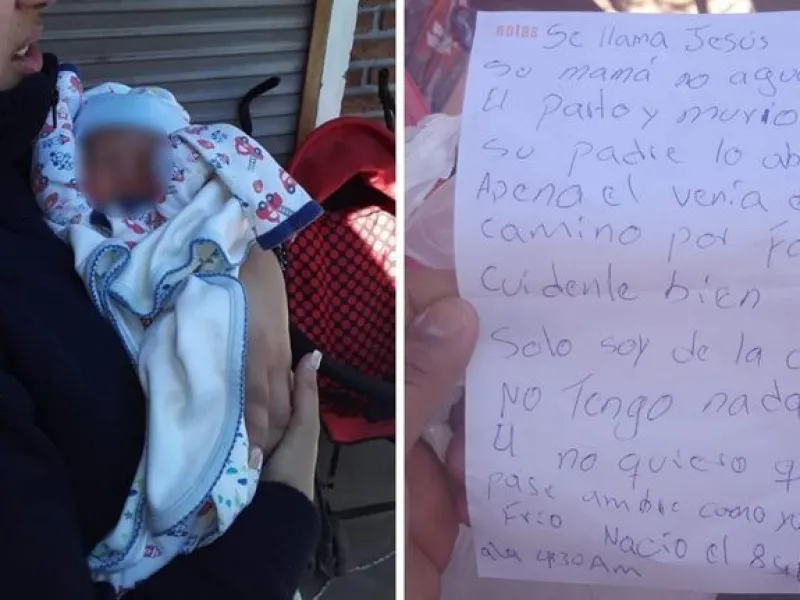 notas
Se llama Jesús
Su mamá no agu
El parto y murio
su padre lo ab
Apena el venia e
camino por fa
Cuidenle bien
Solo soy de la c
No Tengo nada
y no quiero q
pase ambre como y
Frio Nacio el 8
ala 430 Am